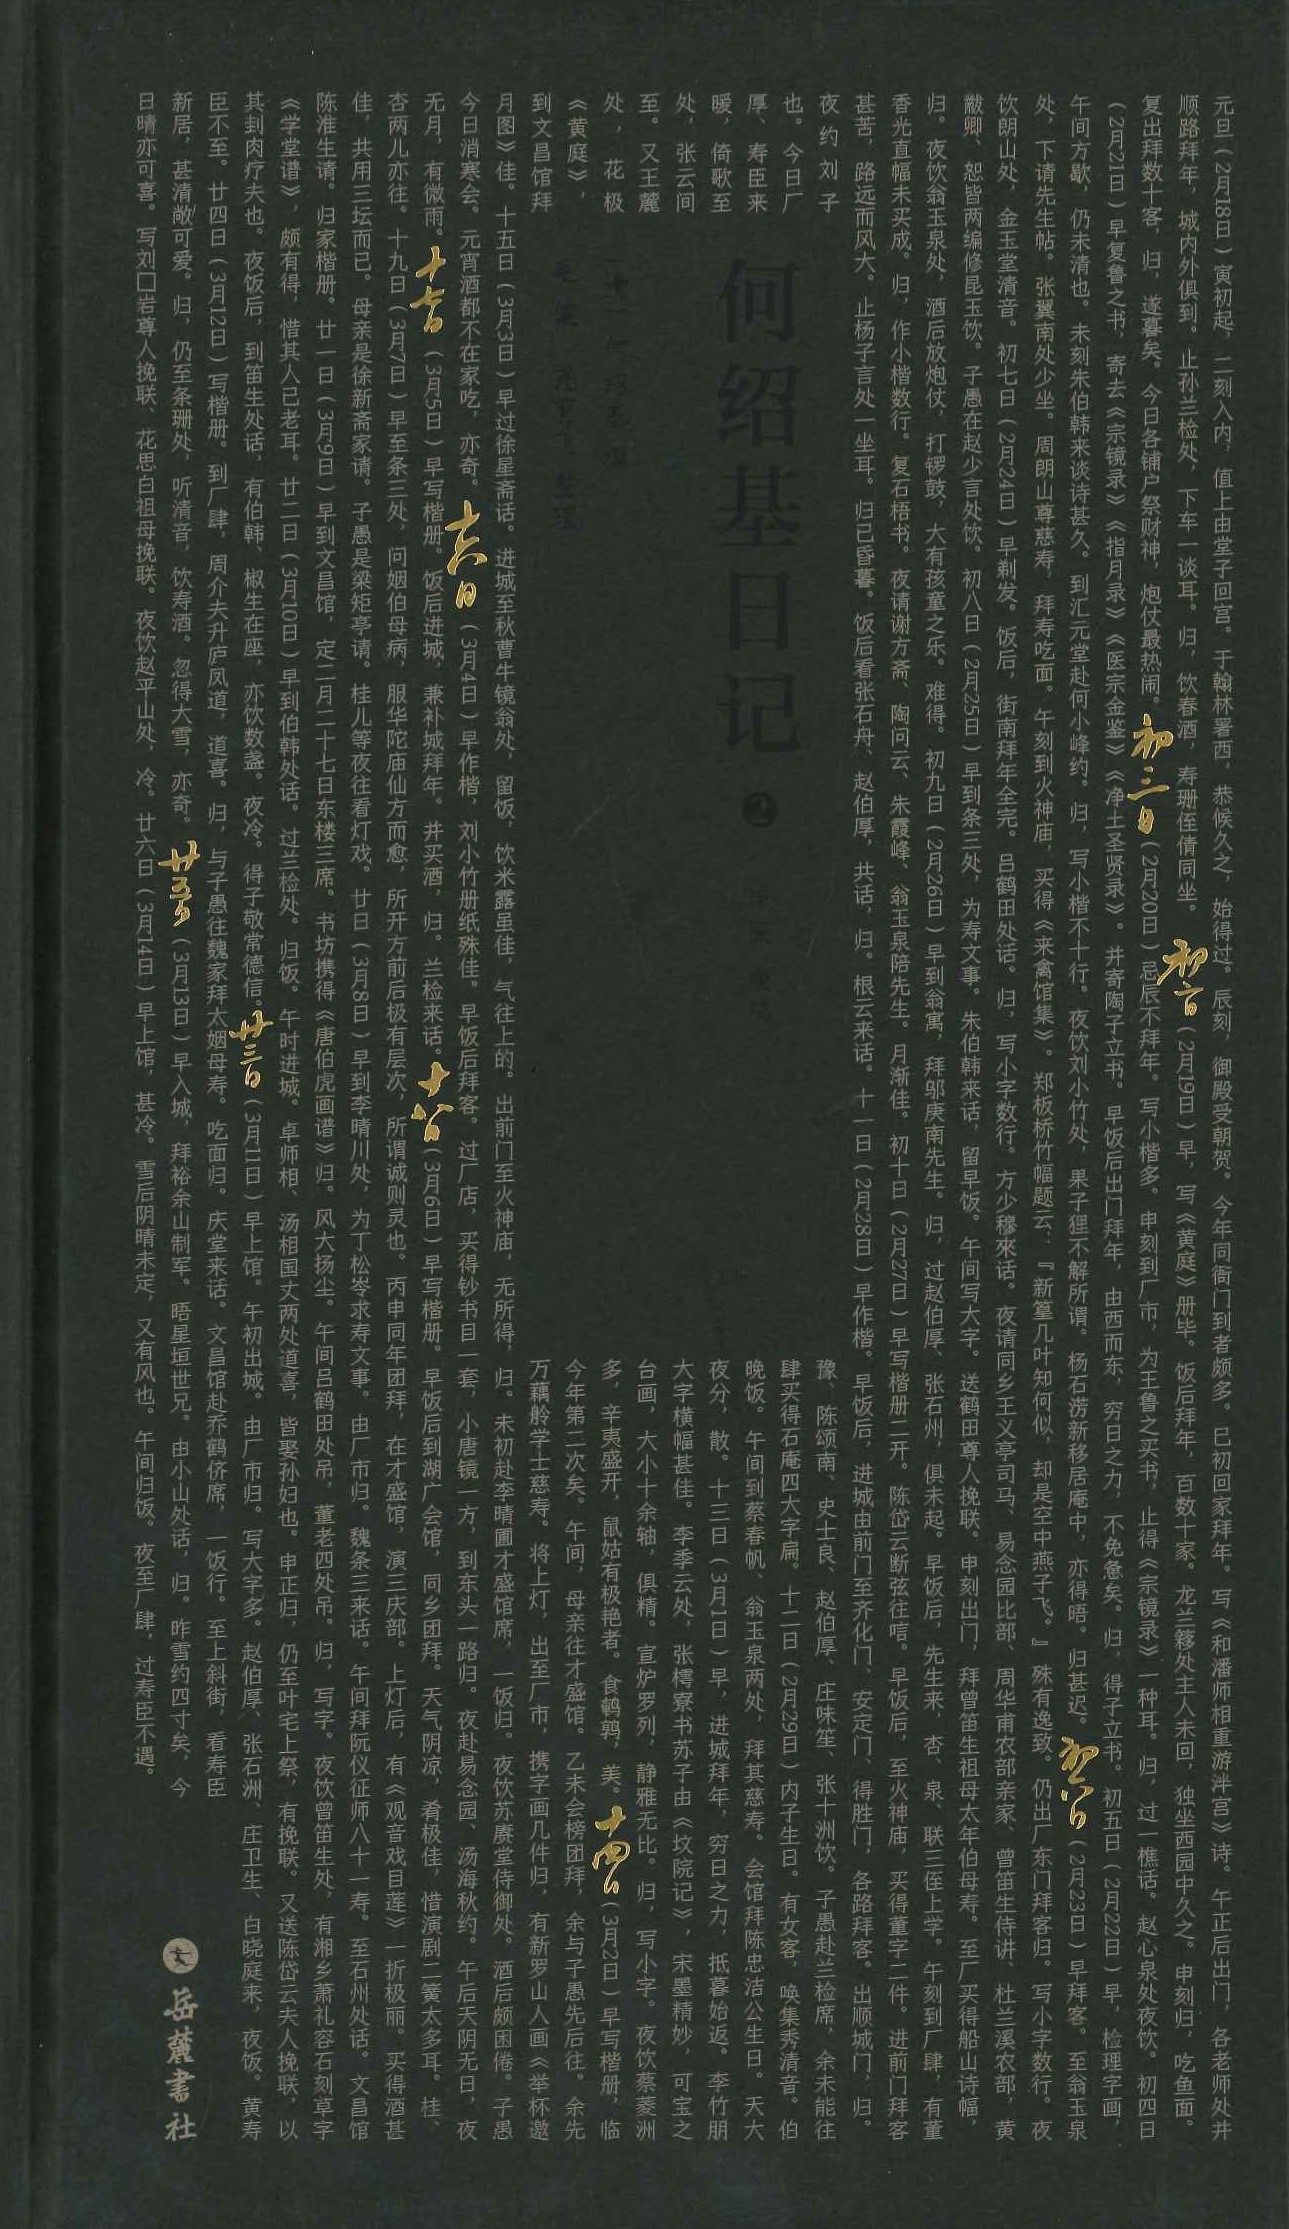 元旦(2月18日)寅初起,二刻入内,值上由堂子回宫。于翰林署西,恭候久之,始得过。辰刻,御殿受朝贺。今年同衙门到者颇多。巳初回家拜年。写《和潘师相重游泮宫》诗。午正后出门,各老师处并
顺路拜年,城内外俱到。止孙兰检处,下车一谈耳。归,饮春酒,寿珊侄倩同坐。初二日(2月19日)早,写《黄庭》册毕。饭后拜年,百数十家。龙兰簃处主人未回,独坐西园中久之。申刻归,吃鱼面。
复出拜数十客,归,遂暮矣。今日各铺户祭财神,炮仗最热闹。初三日(2月20日)忌辰不拜年。写小楷多。申刻到厂市,为王鲁之买书,止得《宗镜录》一种耳。归,过一樵话。赵心泉处夜饮。初四日
(2月21日)早复鲁之书,寄去《宗镜录》《指月录》《医宗金鉴》《净土圣贤录》。并寄陶子立书。早饭后出门拜年,由西而东,穷日之力,不免惫矣。归,得子立书。初五日(2月22日)早,检理字画,
午间方歇,仍未清也。未刻朱伯韩来谈诗甚久。到汇元堂赴何小峰约。归,写小楷不十行。夜饮刘小竹处,果子狸不解所谓。杨石涝新移居庵中,亦得晤。归甚迟。初六日(2月23日)早拜客。至翁玉泉
处,下请先生帖。张翼南处少坐。周朗山尊慈寿,拜寿吃面。午刻到火神庙,买得《来禽馆集》。郑板桥竹幅题云:『新篁几叶知何似,却是空中燕子飞。』殊有逸致。仍出厂东门拜客归。写小字数行。夜
饮朗山处,金玉堂清音。初七日(2月24日)早剃发。饭后,街南拜年全完。吕鹤田处话。归,写小字数行。方少穆来话。夜请同乡王义亭司马、易念园比部、周华甫农部亲家、曾笛生侍讲、杜兰溪农部,黄
黻卿、恕皆两编修昆玉饮。子愚在赵少言处饮。初八日(2月25日)早到条三处,为寿文事。朱伯韩来话,留早饭。午间写大字。送鹤田尊人挽联。申刻出门,拜曾笛生祖母太年伯母寿。至厂买得船山诗幅,
归。夜饮翁玉泉处,酒后放炮仗,打锣鼓,大有孩童之乐。难得。初九日(2月26日)早到翁寓,拜邬庚南先生。归,过赵伯厚、张石州,俱未起。早饭后,先生来,杏、泉、联三侄上学。午刻到厂肆,有董
香光直幅未买成。归,作小楷数行。复石梧书。夜请谢方斋、陶问云、朱霞峰、翁玉泉陪先生。月渐佳。初十日(2月27日)早写楷册二开。陈岱云断弦往唁。早饭后,至火神庙,买得董字二件。进前门拜客
甚苦,路远而风大。止杨子言处一坐耳。归已昏暮。饭后看张石舟、赵伯厚,共话,归。根云来话。十一日(2月28日)早作楷。早饭后,进城由前门至齐化门、安定门、得胜门,各路拜客。出顺城门,归。
夜约刘子
豫、陈颂南、史士良、赵伯厚、庄味笙、张十洲饮。子愚赴兰检席,余未能往
也。今日厂
肆买得石庵四大字扁。十二日(2月29日)内子生日。有女客,唤集秀清音。伯
厚、寿臣来
晚饭。午间到蔡春帆、翁玉泉两处,拜其慈寿。会馆拜陈忠洁公生日。天大
暖,倚歌至
夜分,散。十三日(3月1日)早,进城拜年,穷日之力,抵暮始返。李竹朋
处,张云间
大字横幅甚佳。李季云处,张樗寮书苏子由《坟院记》,宋墨精妙,可宝之
至。又王麓
台画,大小十余轴,俱精。宣炉罗列,静雅无比。归,写小字。夜饮蔡菱洲
处,花极
多,辛夷盛开,鼠姑有极艳者。食鹌鹑,美。十四日(3月2日)早写楷册,临
《黄庭》,
今年第二次矣。午间,母亲往才盛馆。乙未会榜团拜,余与子愚先后往。余先
到文昌馆拜
万藕舲学士慈寿。将上灯,出至厂市,携字画几件归,有新罗山人画《举杯邀
何绍基日记
❷
月图》佳。十五日(3月3日)早过徐星斋话。进城至秋曹牛镜翁处,留饭,饮米露虽佳,气往上的。出前门至火神庙,无所得,归。未初赴李晴圃才盛馆席,一饭归。夜饮苏赓堂侍御处。酒后颇困倦。子愚
今日消寒会。元宵酒都不在家吃,亦奇。十六日(3月4日)早作楷,刘小竹册纸殊佳。早饭后拜客。过厂店,买得钞书目一套,小唐镜一方,到东头一路归。夜赴易念园、汤海秋约。午后天阴无日,夜
无月,有微雨。十七日(3月5日)早写楷册。饭后进城,兼补城拜年。并买酒,归。兰检来话。十八日(3月6日)早写楷册。早饭后到湖广会馆,同乡团拜。天气阴凉,肴极佳,惜演剧二簧太多耳。桂、
杏两儿亦往。十九日(3月7日)早至条三处,问姻伯母病,服华陀庙仙方而愈,所开方前后极有层次,所谓诚则灵也。丙申同年团拜,在才盛馆,演三庆部。上灯后,有《观音戏目莲》一折极丽。买得酒甚
佳,共用三坛而已。母亲是徐新斋家请。子愚是梁矩亭请。桂儿等夜往看灯戏。廿日(3月8日)早到李晴川处,为丁松岑求寿文事。由厂市归。魏条三来话。午间拜阮仪征师八十一寿。至石州处话。文昌馆
陈淮生请。归家楷册。廿一日(3月9日)早到文昌馆,定二月二十七日东楼三席。书坊携得《唐伯虎画谱》归。风大扬尘。午间吕鹤田处吊,董老四处吊。归,写字。夜饮曾笛生处,有湘乡萧礼容石刻草字
《学堂谱》,颇有得,惜其人已老耳。廿二日(3月10日)早到伯韩处话。过兰检处。归饭。午时进城。卓师相、汤相国丈两处道喜,皆娶孙妇也。申正归,仍至叶宅上祭,有挽联。又送陈岱云夫人挽联,以
其封肉疗夫也。夜饭后,到笛生处话,有伯韩、椒生在座,亦饮数盏。夜冷。得子敬常德信。廿三日(3月11日)早上馆。午初出城。由厂市归。写大字多。赵伯厚、张石洲、庄卫生、白晓庭来,夜饭。黄寿
臣不至。廿四日(3月12日)写楷册。到厂肆,周介夫升庐凤道,道喜。归,与子愚往魏家拜太姻母寿。吃面归。庆堂来话。文昌馆赴乔鹤侪席,一饭行。至上斜街,看寿臣
新居,甚清敞可爱。归,仍至条珊处,听清音,饮寿酒。忽得大雪,亦奇。廿五日(3月13日)早入城,拜裕余山制军。晤星垣世兄。由小山处话,归。昨雪约四寸矣,今
日晴亦可喜。写刘□岩尊人挽联、花思白祖母挽联。夜饮赵平山处,冷。廿六日(3月14日)早上馆,甚冷。雪后阴晴未定,又有风也。午间归饭。夜至厂肆,过寿臣不遇。
岳麓書社